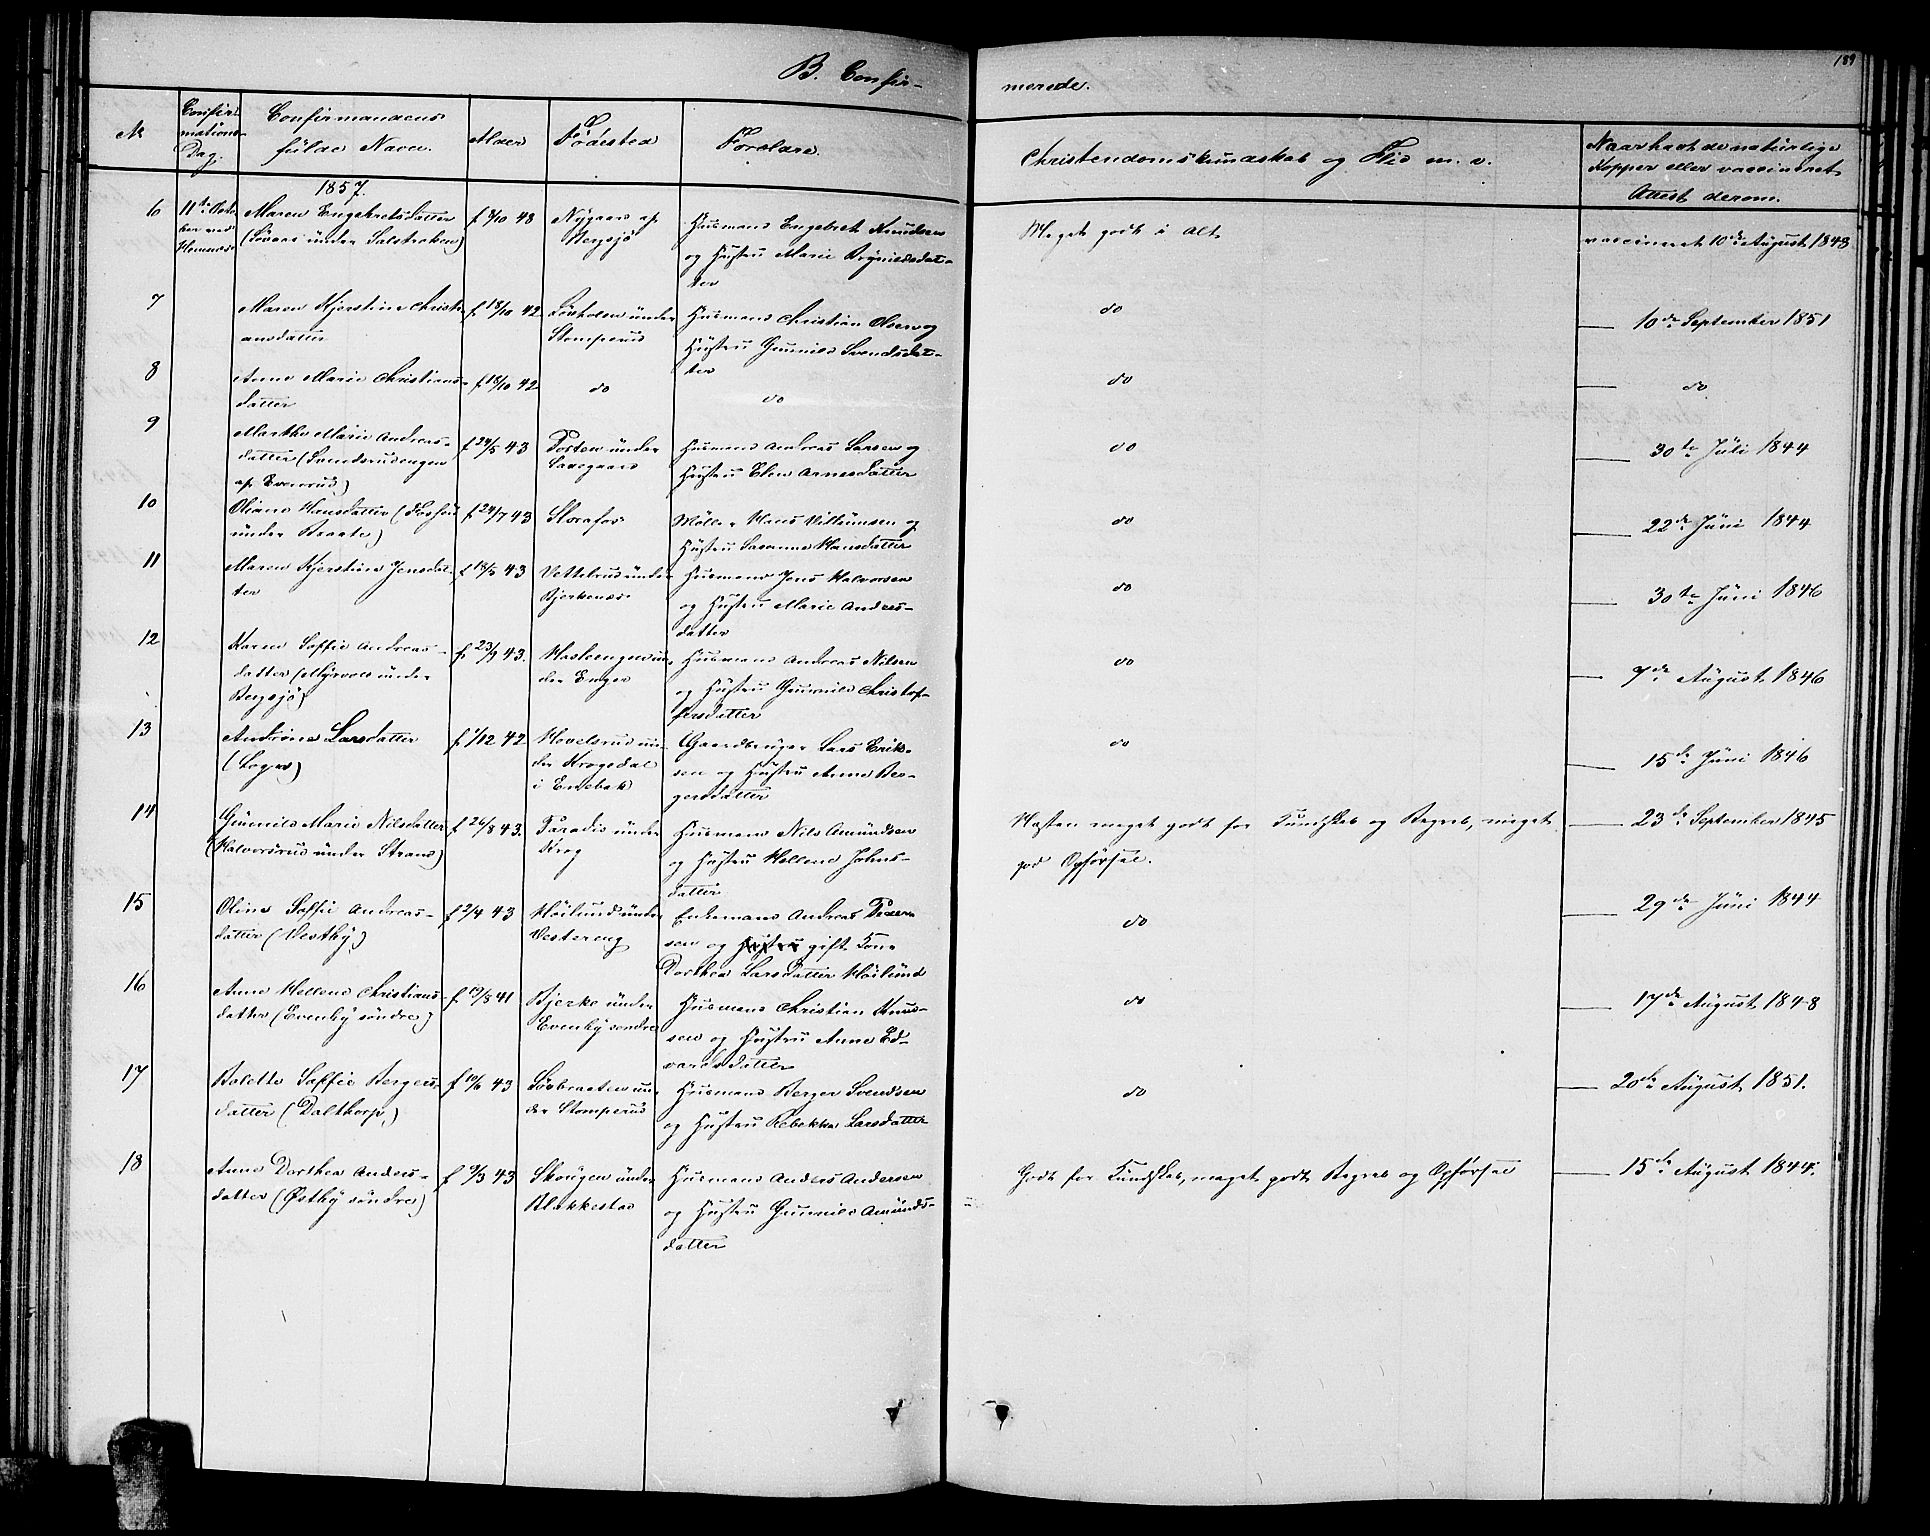 189
B. Confir-
merede.
№
Confir-
mations-
Dag.
Confirmandens
fulde Navn.
Alder
Fødested
Forældre.
Christendomskundskab og Flid m. v.
Naar havt de naturlige
Kopper eller vaccineret
Attest derom.
1857.
6
11te Octo
ber ved
Hemnæs
Maren Engebretsdatter
f. 8/10 43
Nygaard af
Bergsjø
Husmand Engebret Knudsen
og Hustru Marie
ter
Meget godt i Alt
vaccineret 10de August 1843
7
Maren Kjerstine Christi
ansdatter
f. 18/10 42
under
Stomperud
Husmand Christian Olsen og
Hustru Gunnild Svendsdat-
ter
do
10de September 1851
8
Anne Marie Christians-
datter
f. 18/10 42
do
do
do
do
9
Marthe Marie Andreas-
datter (Svendsrudengen
af
f 24/5 43
under
Husmand Andreas Larsen og
Hustru Elen Arnesdatter
do
30te Juli 1844
10
Oliane Hansdatter
under Braate)
f 24/7 43
Storefos
Møller Hans Villumsen og
Hustru Susanne Hansdatter
do
22de Juni 1844
11
Maren Kjerstine Jensdat-
ter
f 13/5 43
under
Bjerkenæs
Husmand Jens Halvorsen
og Hustru Marie Anders-
datter
do
30te Juni 1846
12
Karen Soffie Andreas-
datter (Myrvold under
Bergsjø)
f. 23/9 43.
Hasleengen un
der Enger
Husmand Andreas Nilsen
og Hustru Gunnild Christof-
fersdatter
do
7de August 1846
13
Andrine Larsdatter
f. 1/12 42
Hovelsrud un-
der Krogsdal
i Enebak
Gaardbruger Lars Erik-
sen og Hustru Anne Ber-
gersdatter
do
15de Juni 1846
14
Gunnild Marie Nilsdatter
(Halvorsrud under Strand)
f 26/8 43.
Paradis under
Krog
Husmand Nils Amundsen
og Hustru Hellene Johns-
datter
Næsten meget godt for Kundskab og Begreb, meget
god Opførsel.
23de September 1845
15
Oline Soffie Andreas-
datter (Vestby)
f 2/4 43
Høilund under
Vestereng
Enkemand Andreas Peder-
sen og gift Kone
Dorthea Larsdatter Høilund
do
29de Juni 1844
16
Anne Hellene Christians-
datter (Evenby søndre)
f. 19/8 41
Bjerke under
Evenby søndre
Husmand Christian Knud-
sen og Hustru Anne Ed-
vardsdatter
do
17de August 1848
17
Bolette Soffie Bergers-
datter (Dalthorp)
43
Sørbraaten un-
der Stomperud
Husmand Berger Svendsen
og Hustru Rebekka Larsdatter
do
20de August 1851.
18
Anne Dorthea Anders-
datter (Østby søndre)
f 9/3 43
Skougen under
Blakkestad
Husmand Anders Andersen
og Hustru Gunnild Amunds-
datter
Godt for Kundskab, meget godt Begreb og Opførsel
15de August 1844.